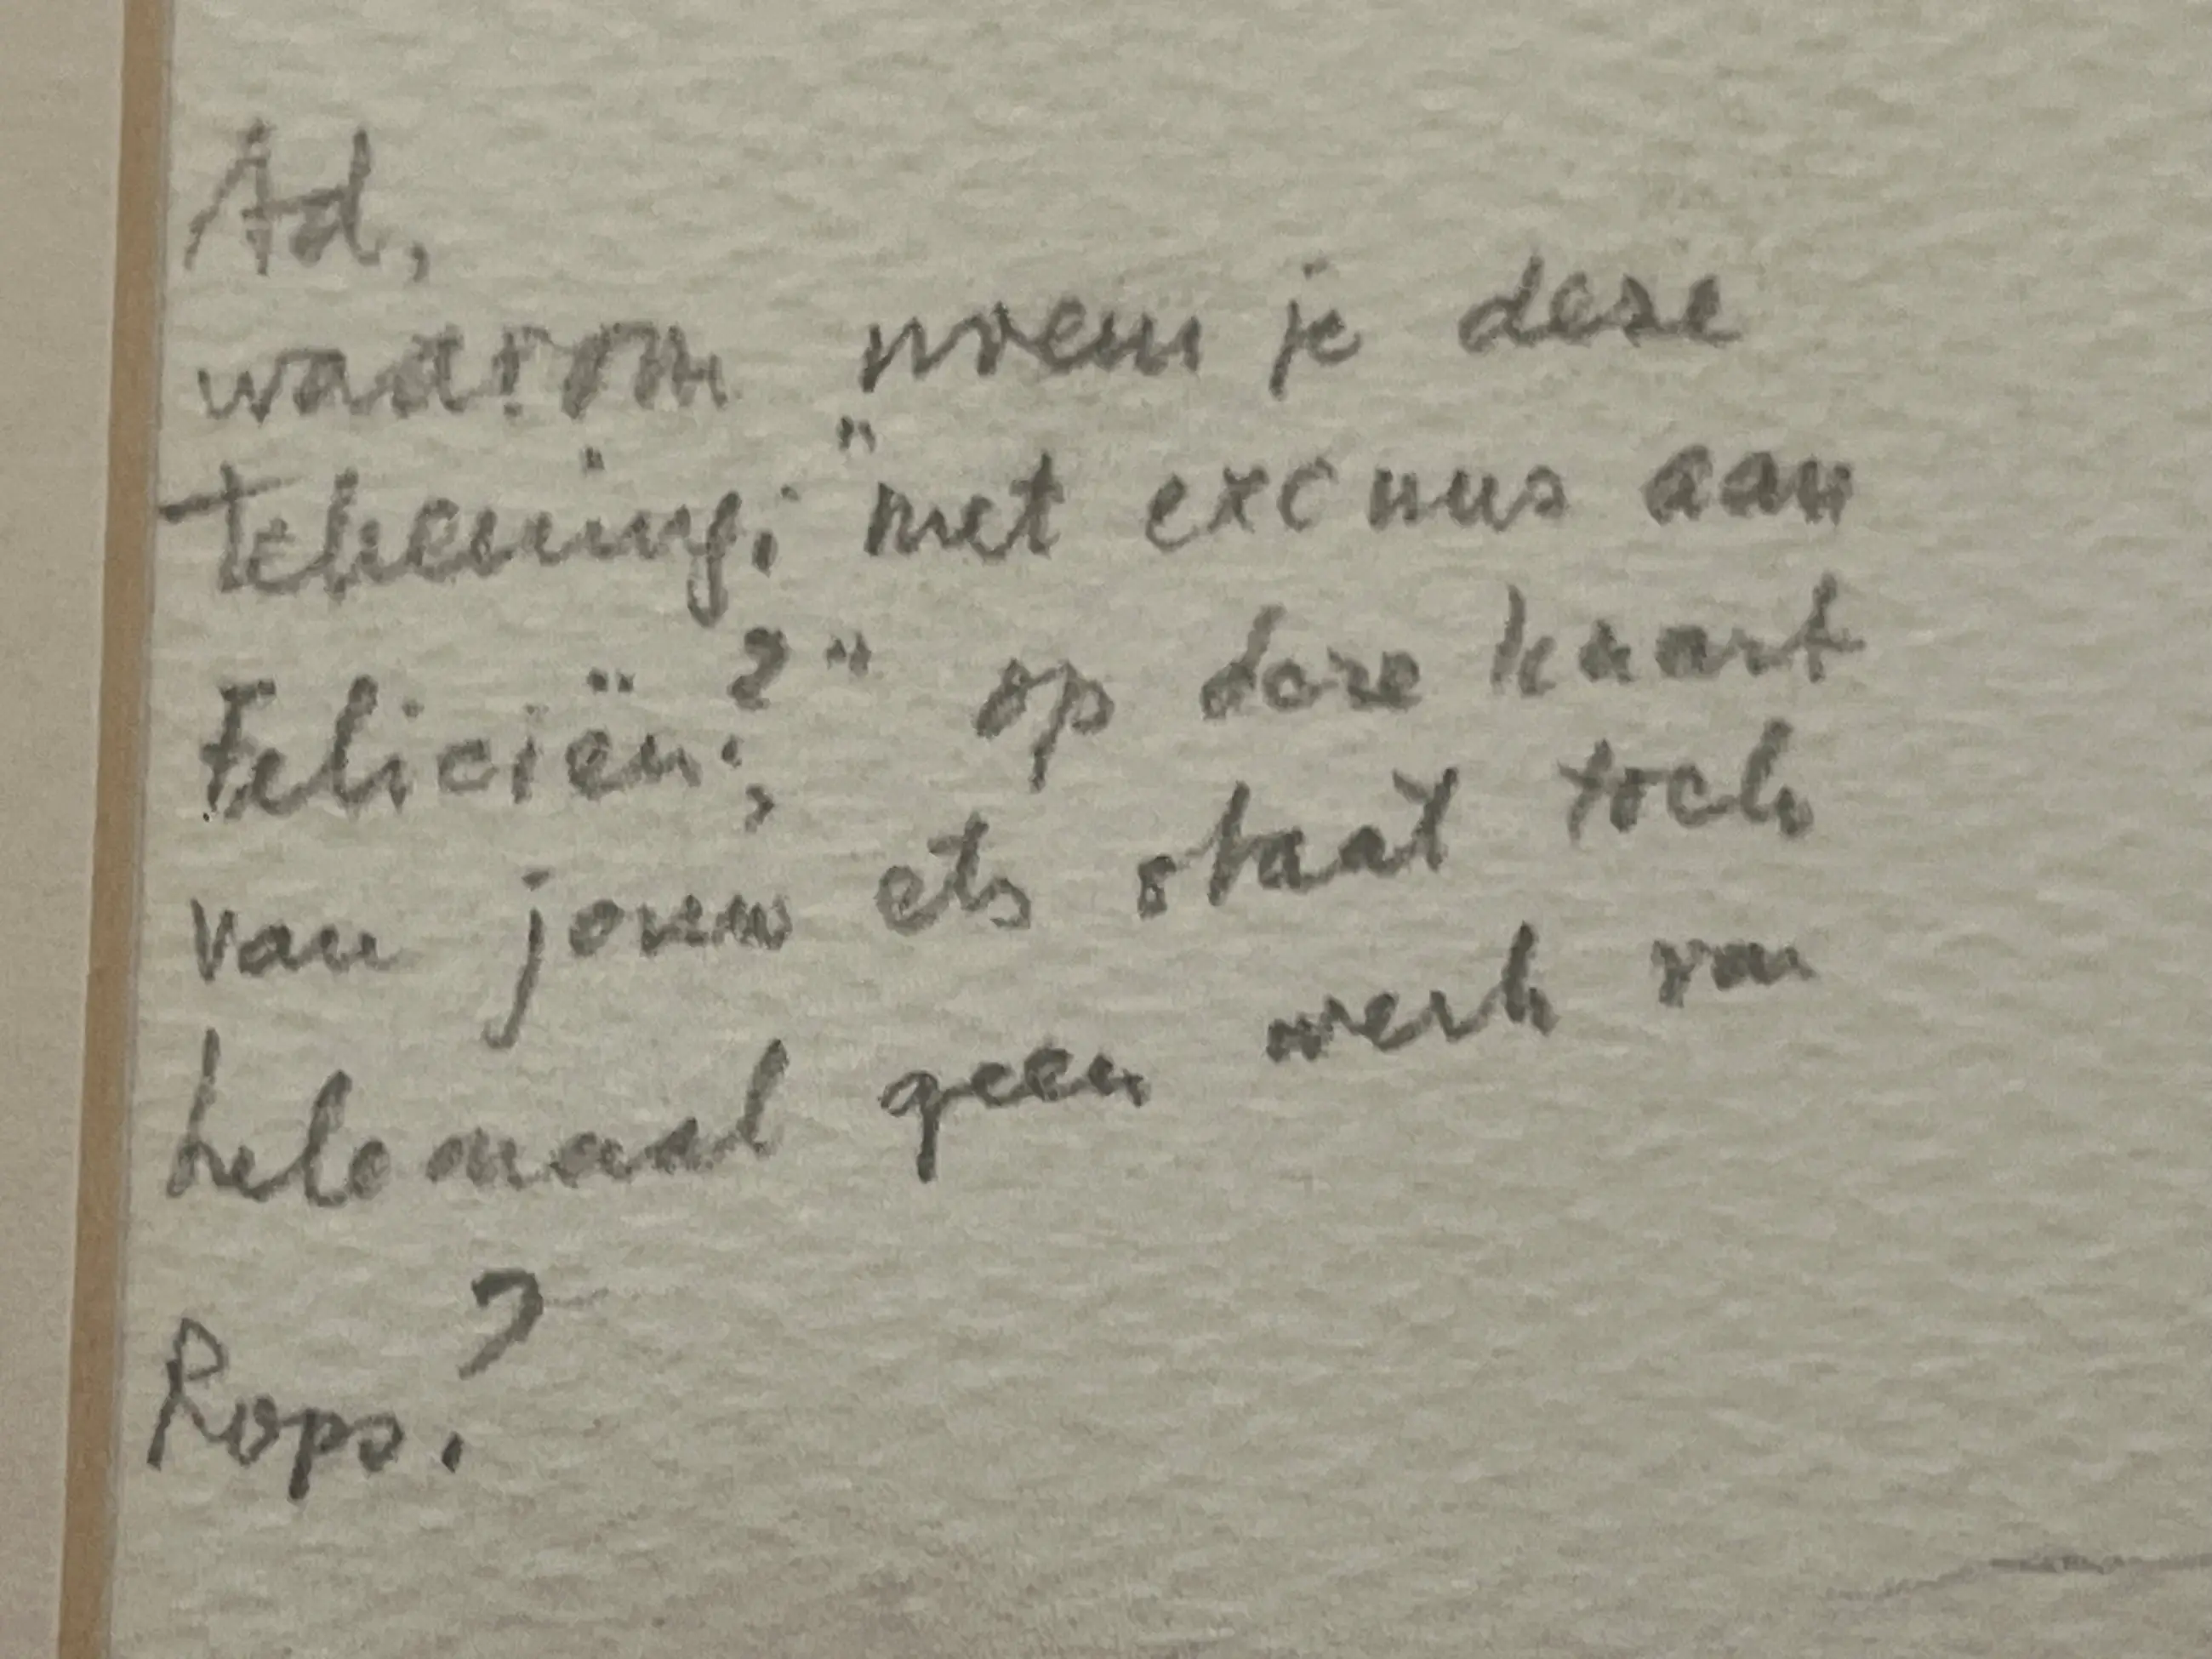 Ad,
waarom noem je deze
tekening: "met excuus aan
Feliciën;?" op deze kaart
van jouw ets staat toch
helemaal geen werk van
Rops?